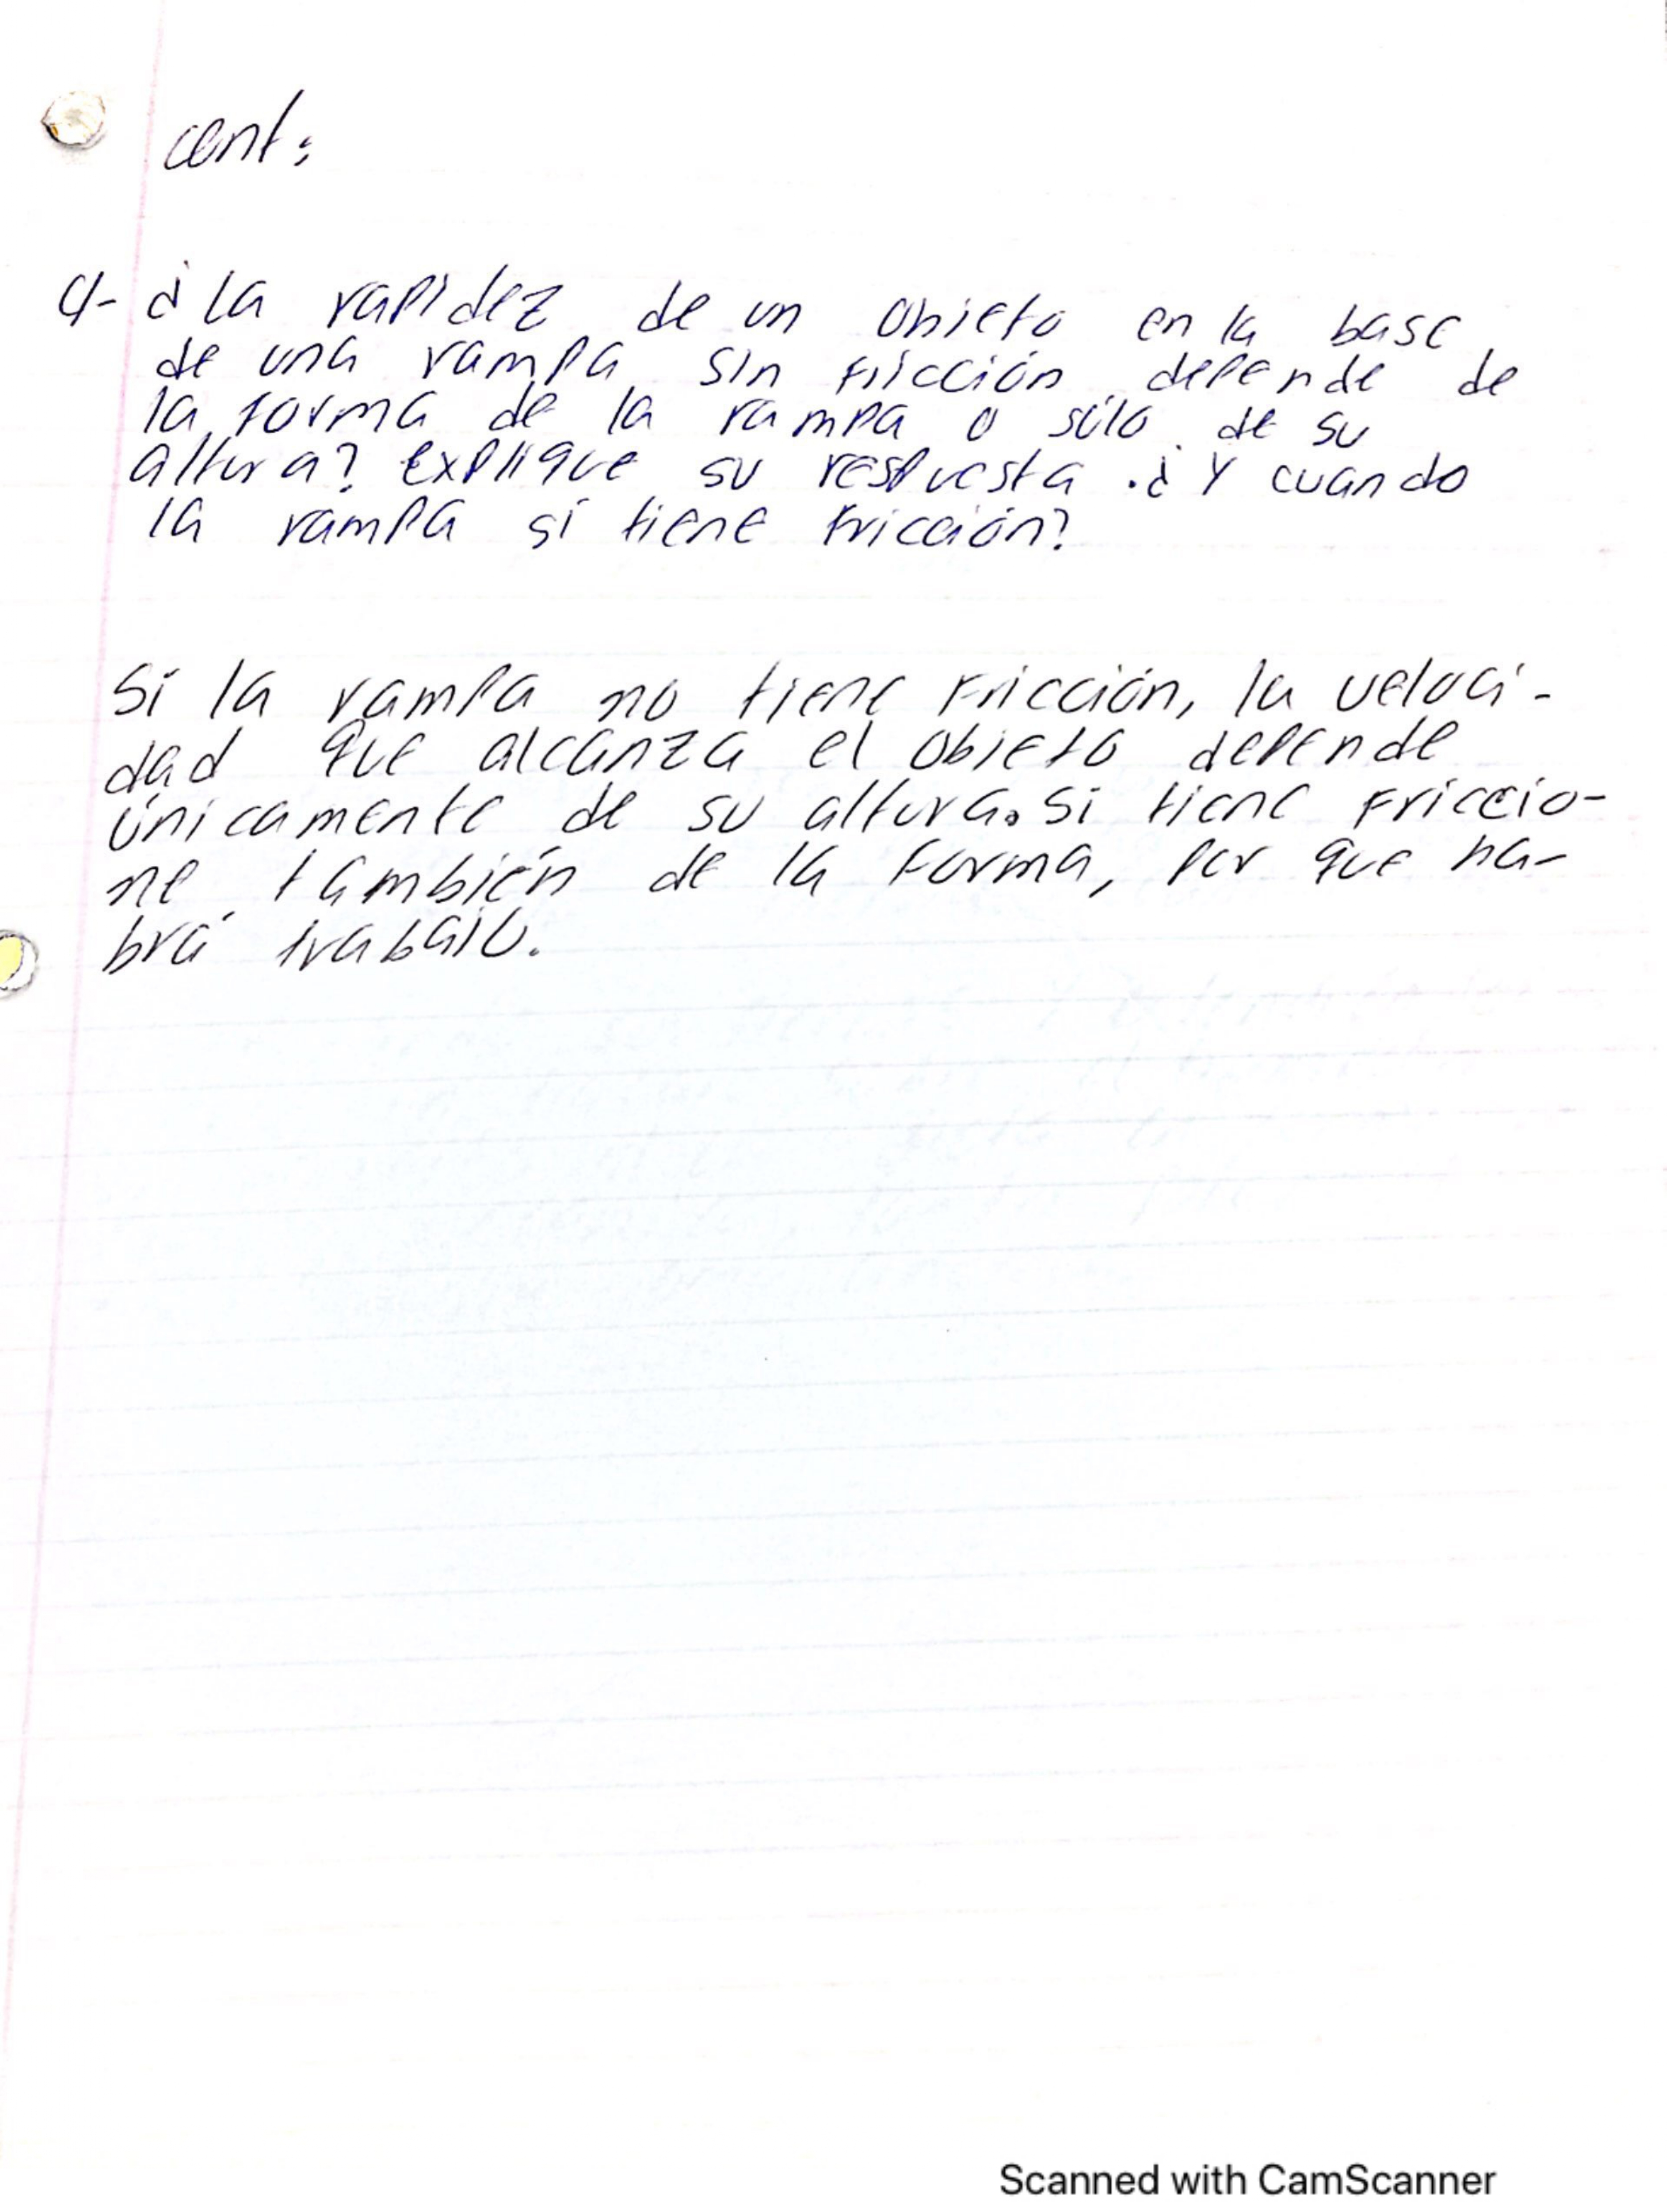 cont:
4- ¿La rapidez de un objeto en la base
de una rampa sin fricción depende de
la forma de la rampa o sólo de su
altura? explique su respuesta. ¿Y cuando
la rampa sí tiene fricción?
Si la rampa no tiene fricción, la veloci-
dad que alcanza el objeto depende
únicamente de su altura. Si tiene friccio-
ne también de la forma, por que ha-
brá trabajo.
Scanned with CamScanner